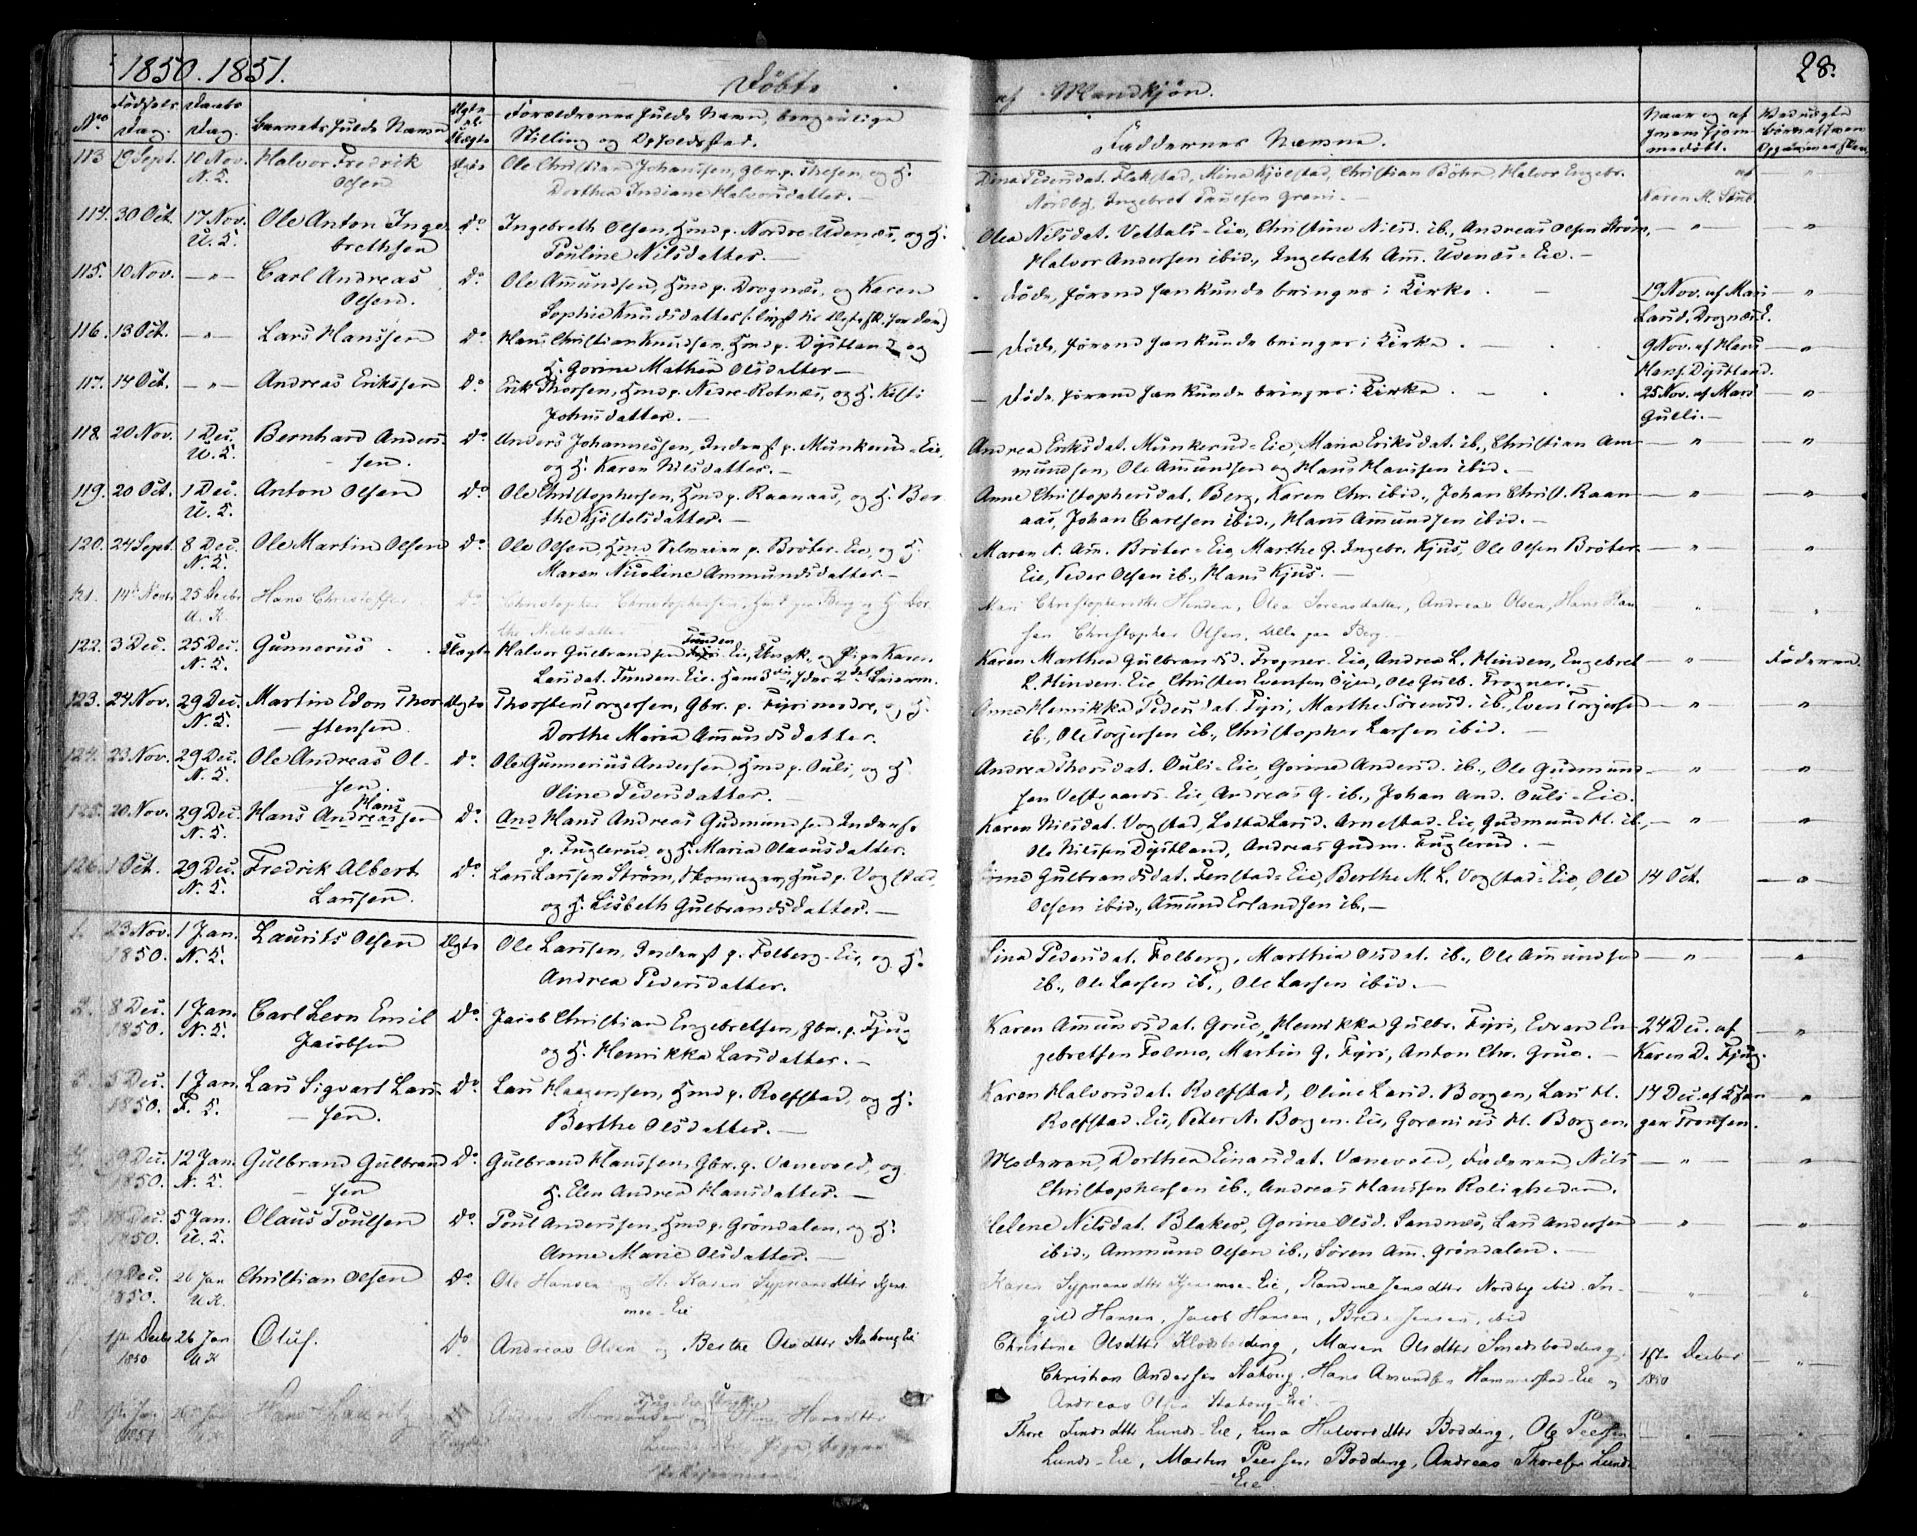 1850. 1851.
Døbte
af Mandkjøn.
28.
No
Fødsels Dag.
Daabs Dag.
Barnets fulde Navn
Ægte el. Uægte
Forældrenes fulde Navn, borgerlige
Stilling og Opholdssted.
Faddernes Navne.
Naar og af
hvem hjem-
medøbt.
113 19 Sept. 10 Nov. Halvor Fredrik Ægte Ole Christian Johansen, Gbr. p. Thesen, og H.
N. K. Olsen Dorthea Indiane Halvorsdatter. —
Dina Pedersdat. Flakstad, Mina Kjølstad, Christian Böhn, Halvor Engebr.
Nordby, Ingebret Paulsen Grani. — Karen M. Stub.
114. 30 Oct. 17 Nov. Ole Anton Inge- Do Ingebreth Olsen, Hmd p. Nordre Udenæs, og H.
U. K. brethsen Pauline Nilsdatter. —
Olea Nilsdat. Vettals-Eie, Christine Nilsd. ib., Andreas Olsen Strøm, — " — "
Halvor Andersen ibid., Ingebreth Am. Udenæs-Eie. —
115. 10 Nov. — " — Carl Andreas Do Ole Amundsen, Hmd p. Drognæs, og Karen
Olsen. Sophie Knudsdatter
Døde, førend han kunde bringes i Kirke. — 19 Nov. af Mari "
Larsd. Drognæs E.
116. 13 Oct. — " — Lars Hanssen Do Hans Christian Knudsen, Hmd p. Dystland og
H. Gorine Mathea Olsdatter —
— Døde, førend han kunde bringes i Kirke. — 9 Nov. af Hans — " —
Hans. Dystland.
117. 14 Oct. — " — Andreas Erikssen Do Erik Thorsen, Hmd p. Nedre-Rotnæs, og H. Kisti
Johnsdatter. —
— Døde førend han kunde bringes i Kirke. — 25 Nov. af Mari — " —
Gulli. —
118. 20 Nov. 1 Dec. Bernhard Anders- Do Anders Johannessen, Inderst p. Munkerud-Eie,
U. K. sen. og H. Karen Nilsdatter. —
Andrea Eriksdat. Munkerud-Eie, Maria Eriksdat. ib., Christian Am- — " — "
mundsen, Ole Amundsen og Hans Hanssen ibid. —
119. 20 Oct. 1 Dec. Anton Olsen Do Ole Christophersen, Hmd p. Raanaas, og H. Ber-
U. K. the Kjøstelsdatter. —
Anne Christophersdat. Berg, Karen Chr. ibid., Johan Christ. Raan- — " — "
aas, Johan Carlsen ibid., Hans Amundsen ibid. —
120. 24 Sept. 8 Dec. Ole Martin Olsen Do Ole Olsen, Hmd Selveier p. Brøter-Eie, og H.
N. K. Maren Nicoline Ammundsdatter. —
Maren N. Am. Brøter-Eie, Marthe G. Ingebr. Kjus, Ole Olsen Brøter- — " — "
Eie, Peder Olsen ib., Hans Kjus. —
121. 14de Novbr 25 Decbr Hans Christoffer Do Christopher Christophersen, Hmd paa Berg og H. Ber-
U. K. the Nielsdatter
Mari Christophersdtr Hinden, Olea Sørensdatter, Andreas Olsen, Hans Han-
sen Christopher Olsen, alle paa Berg
122. 3 Dec. 25 Dec. Gunnerus Uægte Halvor Gulbrandsen Funden-Eie, Ungk. og Pige Karen
N. K. Larsdat. Funden-Eie. Hans 3die, hendes 2det Leierm.
Karen Marthea Gulbrandsd. Frogner-Eie, Andrea L. Hinden, Engebret — " — Faderen.
L. Hinden-Eie, Christen Evensen Øien, Ole Gulb. Frogner. —
123. 24 Nov. 29 Dec. Martin Edon Thor- Ægte Thorsten Torgersen, Gbr. p. Fyri nedre, og H.
N. K. stensen. Dorthe Maria Amundsdatter.
Anne Henrikka Pedersdat. Fyri, Marthe Sørensd. ib., Even Torgersen — " — "
ib., Ole Torjersen ib., Christopher Larsen ibid. —
124. 23 Nov. 29 Dec. Ole Andreas Ol- Do Ole Gunnerius Andersen Hmd p. Ouli, og H.
N. K. sen. Oline Pedersdatter. —
Andrea Thorsdat. Ouli-Eie, Gorine Andersd. ib., Ole Gudmund- — " — "
sen Vestgaards-Eie, Andreas G. ib., Johan And. Ouli-Eie.
125. 20 Nov. 29 Dec. Hans Andreassen Hans Do And Hans Andreas Gudmundsen Inderst
N. K. p. Fuglerud, og H. Maria Olausdatter.
Karen Nilsdat. Vogstad, Lotta Larsd. Arnestad-Eie, Gudmund H. ib., — " — "
Ole Nilssen Dystland, Andreas Gudm. Fuglerud. —
126. 1 Oct. 29 Dec. Fredrik Albert Do Lars Larssen Strøm, Skomager, Hmd p. Vogstad,
N. K. Larssen. og H. Lisbeth Gulbrandsdatter. —
Anne Gulbrandsdat. Fenstad-Eie, Berthe M. L. Vogstad-Eie, Ole 14 Oct. — " —
Olsen ibid., Amund Erlandsen ib. —
1. 23 Nov. 1 Jan. Laurits Olsen Ægte Ole Larssen, Inderst p. Folberg-Eie, og H.
1850. N. K. Andrea Pedersdatter.
Lina Pedersdat. Folberg, Marthia Olsdat. ib., Ole Amundsen — " — "
ib., Ole Larsen ib., Ole Larsen ibid. —
2. 8 Dec. 1 Jan. Carl Leon Emil Do Jacob Christian Engebretsen, Gbr. p. Fjug
1850. N. K. Jacobsen og H. Henrikka Larsdatter. —
Karen Amundsdat. Grue, Henrikka Gulbr. Fyri, Edvard En- 24 Dec. af — "
gebretsen Folmo, Martin G. Fyri, Anton Chr. Grue. — Karen D. Fjug.
3. 5 Dec. 1 Jan. Lars Sigvart Lars- Do Lars Haagensen, Hmd p. Rolfstad, og H.
1850. F. K. sen. Berthe Olsdatter. —
Karen Halvorsdat. Rolfstad, Oline Larsd. Borgen, Lars H. 14 Dec. af "
Rolfstad-Eie, Peter N. Borgen-Eie, Gorenius H. Borgen. Tronsen.
4. 9 Dec. 12 Jan. Gulbrand Gulbrand- Do Gulbrand Hanssen, Gbr. p. Vanevold, og
1850. N. K. sen H. Elen Andrea Hansdatter. —
Moderen, Dorthea Einarsdat. Vanevold, Faderen, Nils — " — "
Christophersen ib., Andreas Hanssen Roligheden.
5. 18 Dec. 5 Jan. Olaus Poulsen Do Poul Anderssen, Hmd p. Grøndalen, og H.
1850. U. K. Anne Marie Olsdatter. —
Helene Nilsdat. Blaker, Gorine Olsd. Sandnæs, Lars Andersen — " — "
ibid., Ammund Olsen ib., Søren Am. Grøndalen. —
6. 19 Dec. 26 Jan Christian Olsen Do Ole Hansen og H. Karen Sypriansdtr Kjens-
1850. U K. moe-Eie
Karen Sypriansdtr Kjensmoe-Eie, Randine Jensdtr Nordby ibid. In-
gild Hansen, Jacob Hansen, Brede Jensen, ibid
1ste Decbr 26 Jan Oluf. Do Andreas Olsen og Berthe Olsdtr Stakoug Eie
1850 U K
Christine Olsdtr Klodsbodding, Maren Olsdtr Smedsbodding, 1ste Decbr
Christian Andersen Stakoug, Hans Amundsen Hammerstad-Eie og 1850
Andreas Olsen Stakoug-Eie.
Hans Lauritz
1851
Thore Lindsdtr Lunds-Eie, Lina Halvorsdtr Bodding, Ole Peersen
Lunds-Eie, Martin Peersen Bodding, Andreas Thoresen Lunds-
Eie.